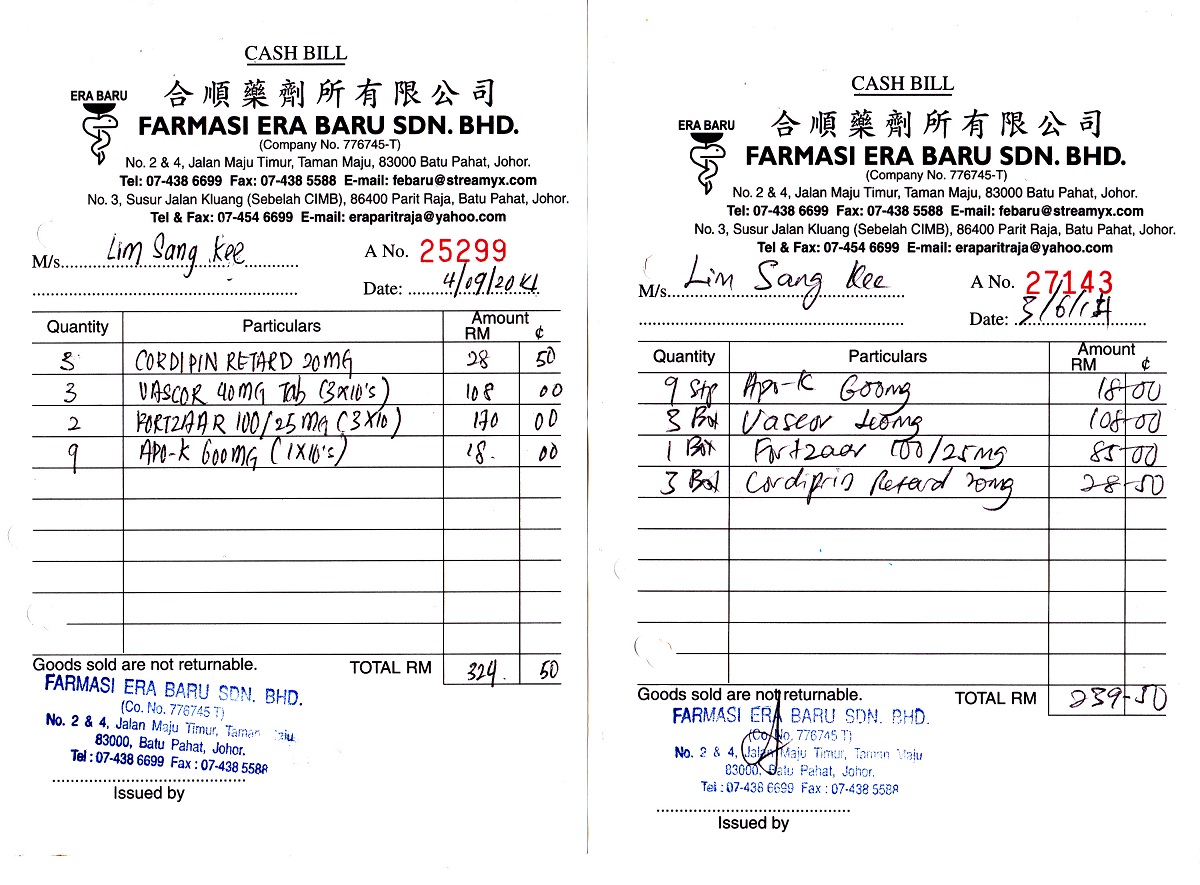 CASH BILL
ERA BARU
合順藥劑所有限公司
FARMASI ERA BARU SDN. BHD.
(Company No. 776745-T)
No. 2 & 4, Jalan Maju Timur, Taman Maju, 83000 Batu Pahat, Johor.
Tel: 07-438 6699 Fax: 07-438 5588 E-mail: febaru@streamyx.com
No. 3, Susur Jalan Kluang (Sebelah CIMB), 86400 Parit Raja, Batu Pahat, Johor.
Tel & Fax: 07-454 6699 E-mail: eraparitraja@yahoo.com
M/s. Lim Sang Kee A No. 25299
Date: 4/09/2014
Quantity Particulars Amount
RM ¢
3 CORDIPIN RETARD 20MG 28 50
3 VASCOR 40MG Tab (3x10's) 108 00
2 FORTZAAR 100/25MG (3x10) 170 00
9 APO-K 600MG (1x10's) 18. 00
Goods sold are not returnable. TOTAL RM 324. 50
FARMASI ERA BARU SDN. BHD.
(Co. No. 776745 T)
No. 2 & 4, Jalan Maju Timur, Taman Maju
83000, Batu Pahat, Johor.
Tel : 07-438 6699 Fax : 07-438 5588
Issued by
CASH BILL
ERA BARU
合順藥劑所有限公司
FARMASI ERA BARU SDN. BHD.
(Company No. 776745-T)
No. 2 & 4, Jalan Maju Timur, Taman Maju, 83000 Batu Pahat, Johor.
Tel: 07-438 6699 Fax: 07-438 5588 E-mail: febaru@streamyx.com
No. 3, Susur Jalan Kluang (Sebelah CIMB), 86400 Parit Raja, Batu Pahat, Johor.
Tel & Fax: 07-454 6699 E-mail: eraparitraja@yahoo.com
M/s. Lim Sang Kee A No. 27143
Date: 3/6/14
Quantity Particulars Amount
RM ¢
9 Stp Apo-K 600mg 18-00
3 Box Vascor 40mg 108-00
1 Box Fortzaar 100/25mg 85-00
3 Box Cordiprin Retard 20mg 28-50
Goods sold are not returnable. TOTAL RM 239-50
FARMASI ERA BARU SDN. BHD.
(Co. No. 776745 T)
No. 2 & 4, Jalan Maju Timur, Taman Maju
83000, Batu Pahat, Johor.
Tel : 07-438 6699 Fax : 07-438 5588
Issued by